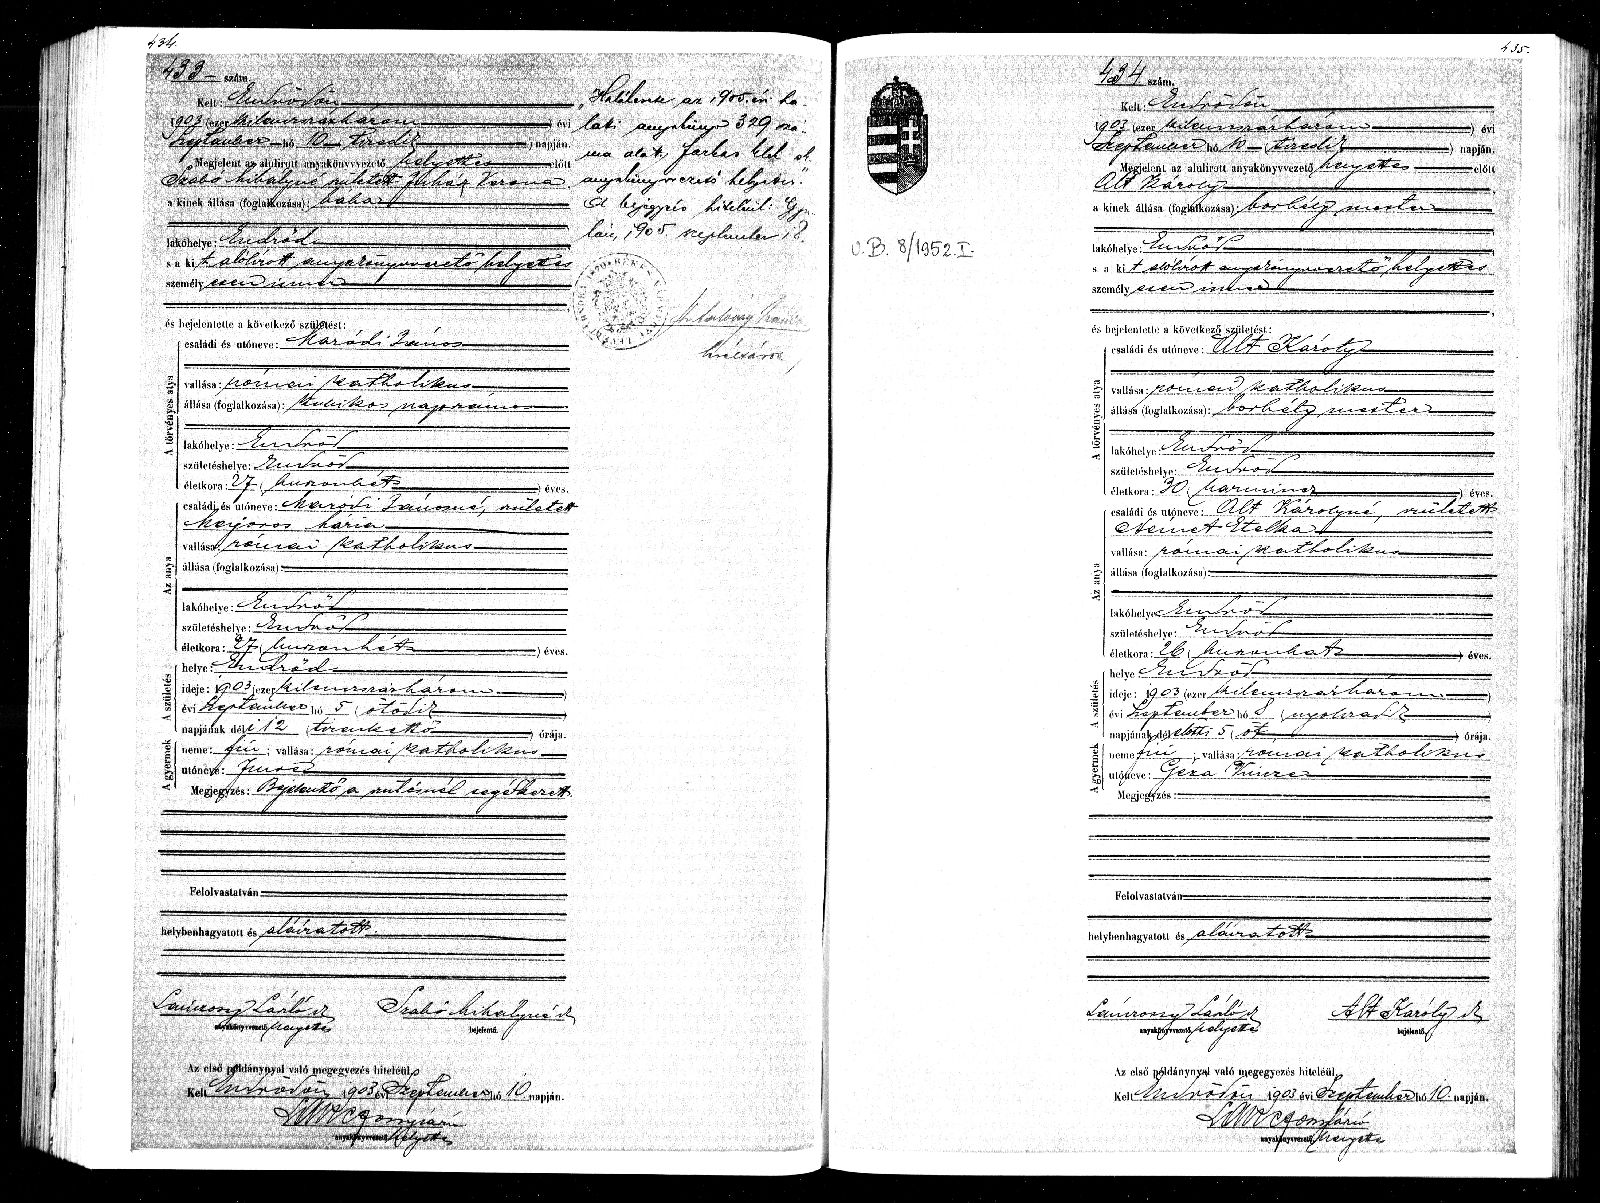 434.
433 szám.
Kelt: Endrődön
1903 (ezer kilenczszázhárom) évi
Szeptember hó 10 tizedik napján.
Megjelent az alulirott anyakönyvvezető helyettes előtt
Szabó Mihályné született Juhász Verona
a kinek állása (foglalkozása): bába
lakóhelye: Endrőd
s a kit alólirott anyakönyvvezető helyettes
személyesen ismer
és bejelentette a következő születést:
A törvényes atya
családi és utóneve: Maródi János
vallása: római katholikus
állása (foglalkozása): kubikos napszámos
lakóhelye: Endrőd
születéshelye: Endrőd
életkora: 27 (huszonhét) éves.
Az anya
családi és utóneve: Maródi Jánosné, született
Majoros Mária
vallása: római katholikus
állása (foglalkozása):
lakóhelye: Endrőd
születéshelye: Endrőd
életkora: 27 (huszonhét) éves.
A születés
helye: Endrőd
ideje: 1903 (ezer kilenczszázhárom)
évi Szeptember hó 5 (ötödik
napjának déli 12 (tizenkettő) órája.
A gyermek
neme: fiú; vallása: római katholikus
utóneve:
Megjegyzés: Bejelentő a szülésnél segédkezett
Felolvastatván
helybenhagyatott és aláiratott.
László Szabó Mihályné
anyakönyvvezető helyettes bejelentő.
Az első példánynyal való megegyezés hiteléül,
Kelt Endrődön 1903 évi Szeptember hó 10 napján.
anyakönyvvezető helyettes
"Halálesete az 1905. évi ha-
lati anyakönyv 329 szá-
ma alatt. Farkas
anyakönyvvezető helyettes."
A bejegyzés hiteléül: Gyu-
lán, 1905 szeptember 18.
levéltárnok
435.
434 szám.
V.B. 8/1952.I.
Kelt: Endrődön
1903 (ezer kilenczszázhárom) évi
Szeptember hó 10 tizedik napján.
Megjelent az alulirott anyakönyvvezető helyettes előtt
Alt Károly
a kinek állása (foglalkozása): borbély mester
lakóhelye: Endrőd
s a kit alólirott anyakönyvvezető helyettes
személyesen ismer
és bejelentette a következő születést:
A törvényes atya
családi és utóneve: Alt Károly
vallása: római katholikus
állása (foglalkozása): borbély mester
lakóhelye: Endrőd
születéshelye: Endrőd
életkora: 30 (harmincz) éves.
Az anya
családi és utóneve: Alt Károlyné, született
Német Etelka
vallása: római katholikus
állása (foglalkozása):
lakóhelye: Endrőd
születéshelye: Endrőd
életkora: 26 (huszonhat) éves.
A születés
helye Endrőd
ideje: 1903 (ezer kilenczszázhárom)
évi Szeptember hó 8 (nyolczadik
napjának délelőtti 5 (öt) órája.
A gyermek
neme fiú; vallása: római katholikus
utóneve: Géza Vincze
Megjegyzés:
Felolvastatván
helybenhagyatott és aláiratott
László Alt Károly
anyakönyvvezető helyettes bejelentő.
Az első példánynyal való megegyezés hiteléül,
Kelt Endrődön 1903 évi Szeptember hó 10 napján.
anyakönyvvezető helyettes